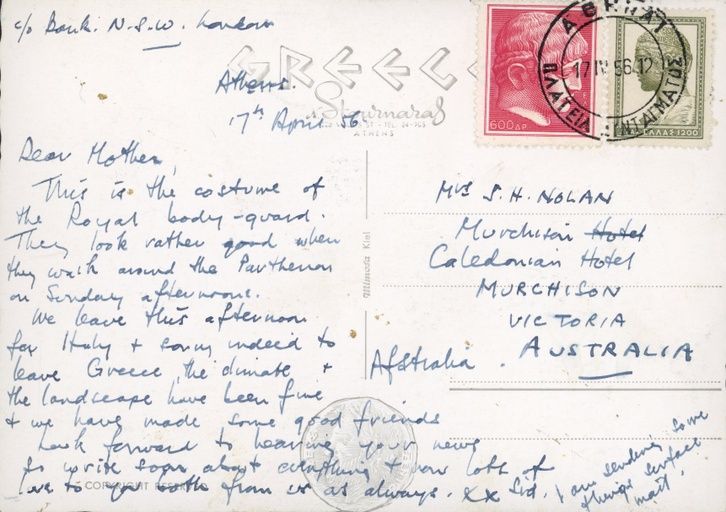 c/o Bank. N.S.W. London
GREECE
Athens.
Stournaras
ATHENS
17th April 56.
Dear Mother,
This is the costume of
the Royal body-guard.
They look rather good when
they walk around the Parthenon
on Sunday afternoons.
We leave this afternoon
for Italy & sorry indeed to
leave Greece, the climate &
the landscape have been fine
& we have made some good friends
Look forward to hearing your news
so write soon about everything & very lots of
love to you both from us as always. xx Sid.
I am sending some
things surface
mail.
COPYRIGHT RESERVED
Mimosa Kiel
600 ΔΡ
ΕΛΛΑΣ 1200
17 IV 56. 12
ΠΛΑΤΕΙΑ ΣΥΝΤΑΓΜΑΤΟΣ
Mrs S. H. NOLAN
Murchison Hotel
Caledonian Hotel
MURCHISON
VICTORIA
AUSTRALIA
Afstralia